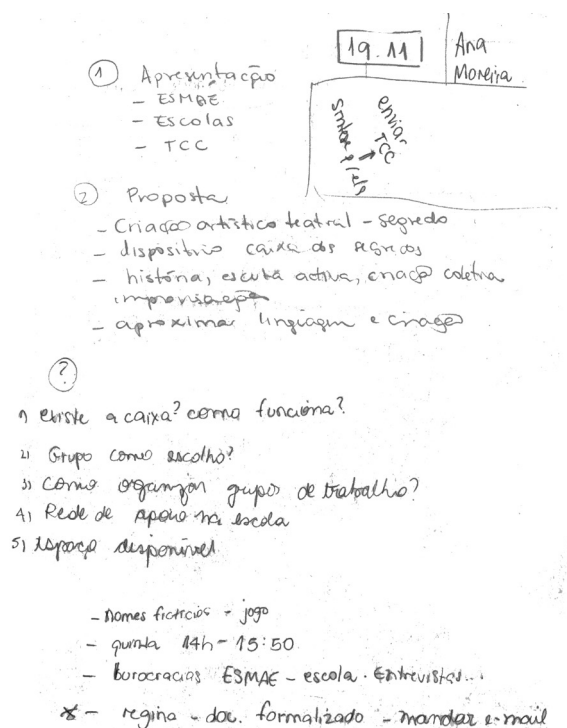 19.11
Ana
Moreira
1 Apresentação
- ESMAE
- Escolas
- TCC
enviar
TCC
2 Proposta
- Criação artístico teatral - segredo
- dispositivo caixa dos segredos
- história, escuta activa, criação coletiva
improvisação
- aproximar linguagem e criação
?
1) existe a caixa? como funciona?
2) Grupo como escolho?
3) Como organizar grupos de trabalho?
4) Rede de apoio na escola
5) espaço disponível
- nomes fictícios - jogo
- quinta 14h - 15:50
- burocracias ESMAE - escola. Entrevistas...
* - regina - doc. formalizado - mandar e-mail